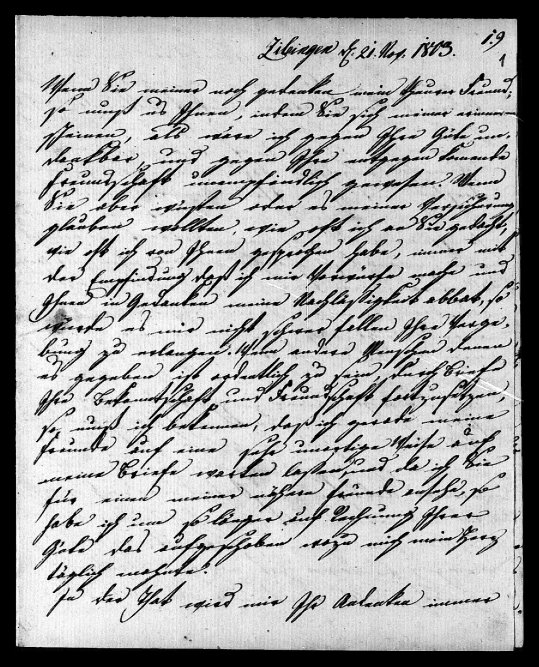 Zibingen d. 21. Nov. 1803.
19
1
Wenn Sie meiner noch gedenken mein theurer Freund,
so muß es Ihnen, indem Sie sich meiner erinnern
scheinen, als wäre ich gegen Ihre Güte un-
dankbar und gegen Ihre entgegen komende
Freundschaft unempfindlich gewesen. Wenn
Sie aber wüßten oder es meiner Versicherung
glauben wollten, wie oft ich an Sie gedacht,
wie oft ich von Ihnen gesprochen habe, immer mit
der Empfindung daß ich mir Vorwürfe mache und
Ihnen in Gedanken meine Nachlessigkeit abbat, so
würde es mir nicht schwer fallen Ihre Verge-
bung zu erlangen. Wenn andere Menschen denen
es gegeben ist ordentlich zu sein, durch Briefe
Ihre Bekantschaft und Freundschaft fortzusetzen,
so muß ich bekennen, daß ich gerade meine
Freunde auf eine sehr unartige Weise auf
meine Briefe warten lasse, und da ich Sie
für einen meiner nähern Freunde ansehe, so
habe ich um so länger auf Rechnung Ihrer
Güte das aufgeschoben wozu mich mein Herz
täglich mahnte.
In der That wird mir Ihr Andenken immer